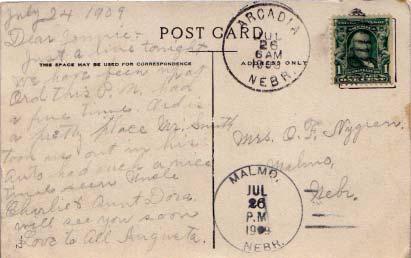 July 24 1909
Dear Jennie-
Just a line tonight
we have been
Ord this P.M. had
a fine time. Ord is
a pretty place Mr. Smith
took us out in his
auto had such a nice
time seen Uncle
Charlie & Aunt Dora
will see you soon
Love to All Augusta.
POST CARD
THIS SPACE MAY BE USED FOR CORRESPONDENCE
ADDRESS ONLY
ARCADIA
JUL
26
6 AM
1909
NEBR.
Mrs. O. F. Nygren.
Malmo,
Nebr.
MALMO,
JUL
26
P.M
1909
NEBR.